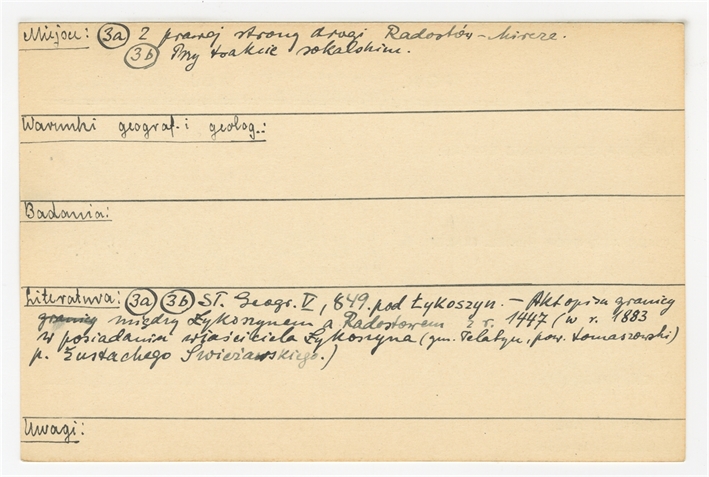 Miejsce: (3a) Z prawej strony drogi Radostów-Mircze.
(3b) Przy trakcie sokalskim.
Warunki geograf. i geolog.:
Badania:
Literatura: (3a) (3b) Sł. Geogr. V, 849. pod Łykoszyn. - Akt opisu granicy
granicy między Łykoszynem a Radostowem z r. 1447 (w r. 1883
w posiadaniu właściciela Łykoszyna (gm. Telatyn, pow. tomaszowski)
p. Eustachego Swieżawskiego.)
Uwagi: